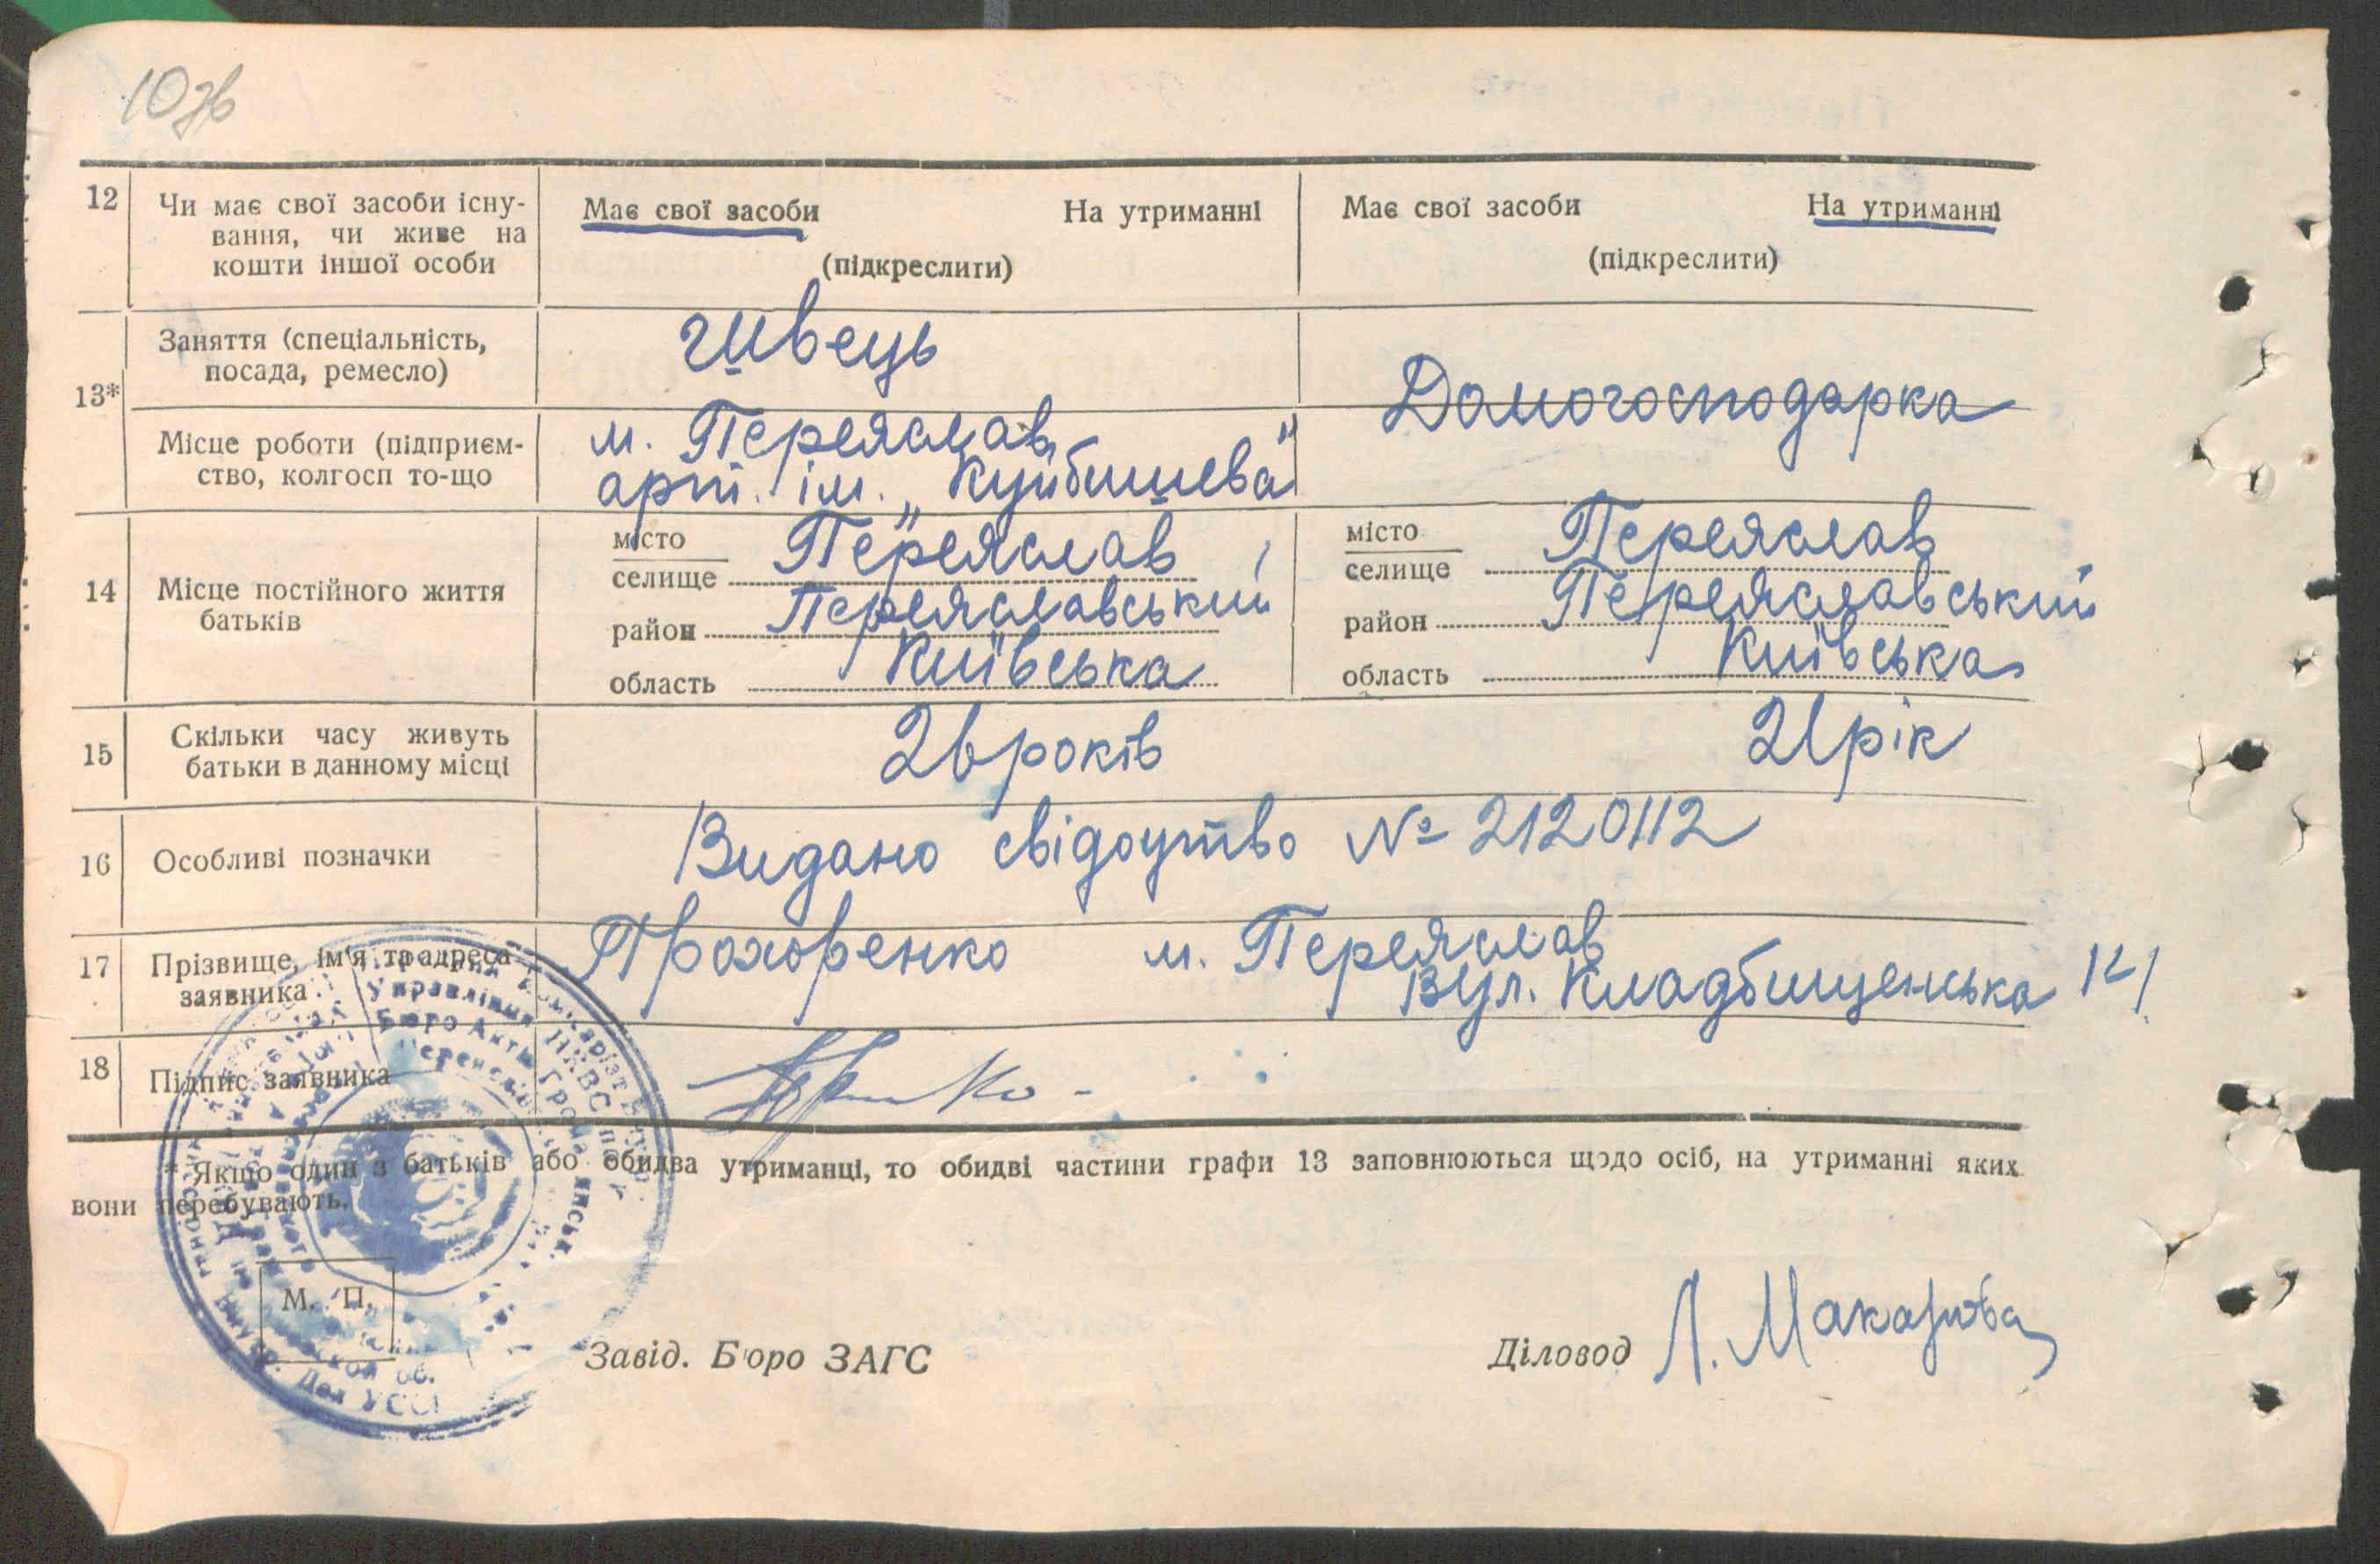 10зв
12 Чи має свої засоби існу-
вання, чи живе на
кошти іншої особи
Має свої засоби На утриманні
(підкреслити)
Має свої засоби На утриманні
(підкреслити)
13*
Заняття (спеціальність,
посада, ремесло)
швець
Домогосподарка
Місце роботи (підприєм-
ство, колгосп то-що
м. Переяслав
арт. ім. „Куйбишева"
14 Місце постійного життя
батьків
місто
селище Переяслав
район Переяславський
область Київська
місто
селище Переяслав
район Переяславський
область Київська
15 Скільки часу живуть
батьки в данному місці
26 років
21 рік
16 Особливі позначки
Видано свідоцтво № 2120112
17 Прізвище, ім'я та адреса
заявника
Прохоренко м. Переяслав
вул. Кладбищенська
18 Підпис заявника
* Якщо один з батьків або обидва утриманці, то обидві частини графи 13 заповнюються щодо осіб, на утриманні яких
вони перебувають.
Управління НКВС по
Бюро Актів Громадянськ.
Внутр. Дел УССР
М. П.
Завід. Бюро ЗАГС
Діловод Л. Макарова